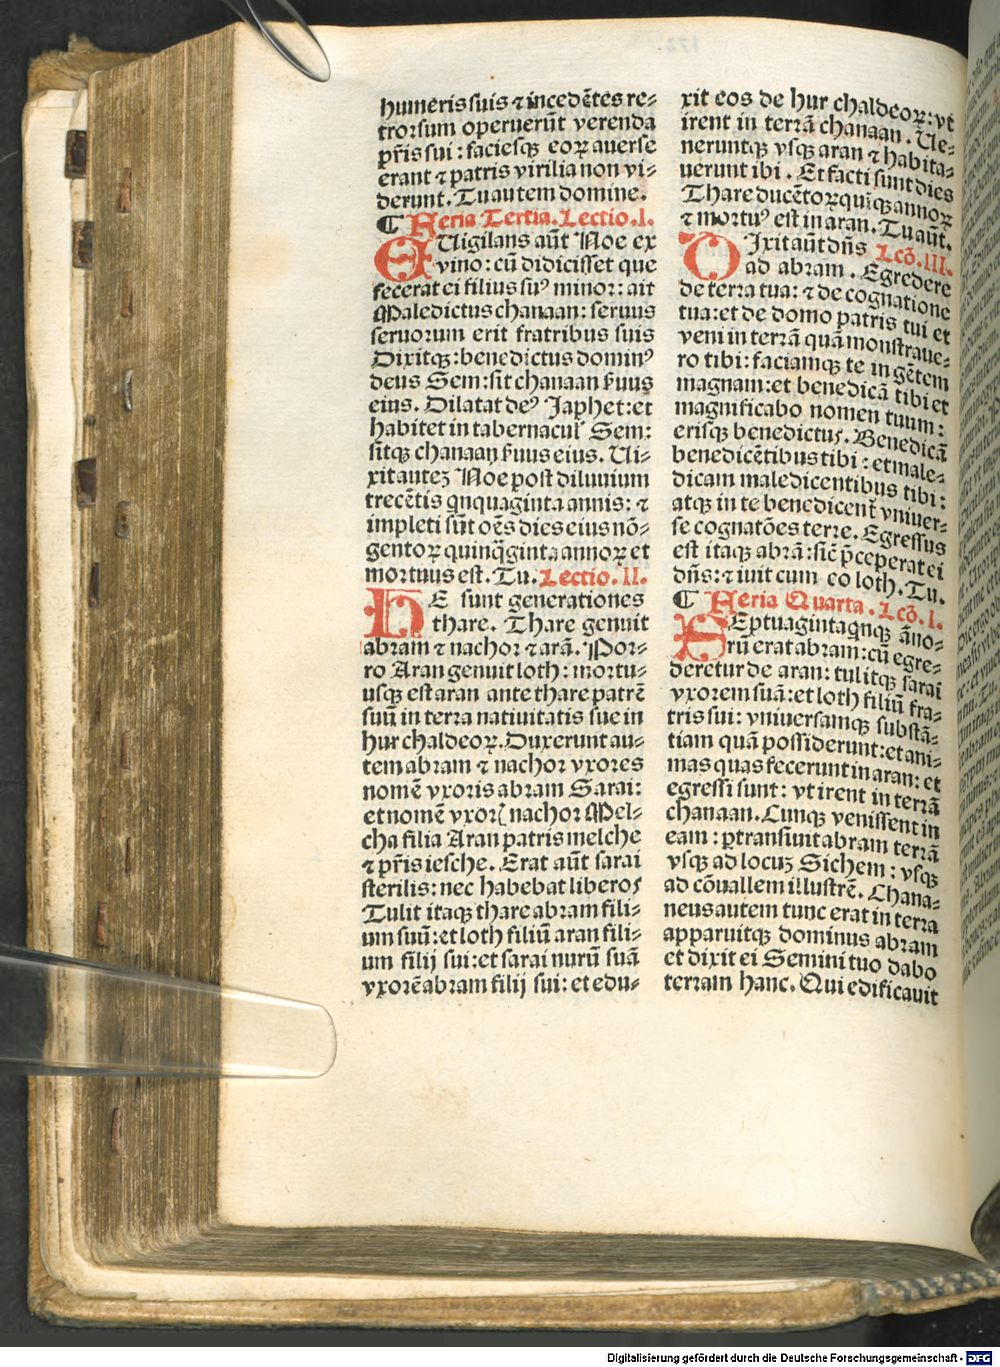 humeris suis ⁊ incedētes re⸗
trorsum operuerūt verenda
pr̄is sui : faciesqꝫ eoꝝ auerse
erant ⁊ patris virilia non vi⸗
derunt. Tu autem domine.
¶ Feria Tertia. Lectio. I.
EUigilans aūt Noe ex
vino : cū didicisset que
fecerat ei filius suꝰ minor : ait
Maledictus chanaan : seruus
seruorum erit fratribus suis
Dixitqꝫ : benedictus dominꝰ
deus Sem : sit chanaan ẜuus
eius. Dilatat deꝰ Japhet : et
habitet in tabernacul' Sem :
sitqꝫ chanaan ẜuus eius. Ui⸗
xit auteꝫ Noe post diluuium
trecētis qnquaginta annis : ⁊
impleti sūt oēs dies eius nō⸗
gentoꝝ quinq̄ginta annoꝝ et
mortuus est. Tu. Lectio. II.
HE sunt generationes
thare. Thare genuit
abram ⁊ nachor ⁊ arā. Por⸗
ro Aran genuit loth : mortu⸗
usqꝫ est aran ante thare patrē
suū in terra natiuitatis sue in
hur chaldeoꝝ. Duxerunt au⸗
tem abram ⁊ nachor vxores
nomē vxoris abram Sarai :
et nomē vxorꝭ nachor Mel⸗
cha filia Aran patris melche
⁊ pr̄is iesche. Erat aūt sarai
sterilis : nec habebat liberos
Tulit itaqꝫ thare abram fili⸗
um suū : et loth filiū aran fili⸗
um filij sui : et sarai nurū suā
vxorē abram filij sui : et edu⸗
xit eos de hur chaldeoꝝ : vt
irent in terrā chanaan. Ue⸗
neruntqꝫ vsqꝫ aran ⁊ habita⸗
uerunt ibi. Et facti sunt dies
Thare ducētoꝝ quīqꝫ annoꝝ
⁊ mortuꝰ est in aran. Tu aūt.
DIxit aūt dn̄s Lcō. III.
ad abram. Egredere
de terra tua : ⁊ de cognatione
tua : et de domo patris tui et
veni in terrā quā monstraue⸗
ro tibi : faciamqꝫ te in gētem
magnam : et benedicā tibi et
magnificabo nomen tuum :
erisqꝫ benedictus. Benedicā
benedicētibus tibi : et male⸗
dicam maledicentibus tibi :
atqꝫ in te benedicent̄ vniuer⸗
se cognatōes terre. Egressus
est itaqꝫ abrā : sic̄ p̄ceperat ei
dn̄s : ⁊ iuit cum eo loth. Tu.
¶ Feria Quarta. Lcō. I.
SEptuaginta qnqꝫ āno⸗
rū erat abram : cū egre⸗
deretur de aran : tulitqꝫ sarai
vxorem suā : et loth filiū fra⸗
tris sui : vniuersamqꝫ substā⸗
tiam quā possiderunt : et ani⸗
mas quas fecerunt in aran : et
egressi sunt : vt irent in terrā
chanaan. Cunqꝫ venissent in
eam : ꝑtransiuit abram terrā
vsqꝫ ad locuꝫ Sichem : vsqꝫ
ad cōuallem illustrē. Chana⸗
neus autem tunc erat in terra
apparuitqꝫ dominus abram
et dixit ei Semini tuo dabo
terram hanc. Qui edificauit
Digitalisierung gefördert durch die Deutsche Forschungsgemeinschaft - DFG